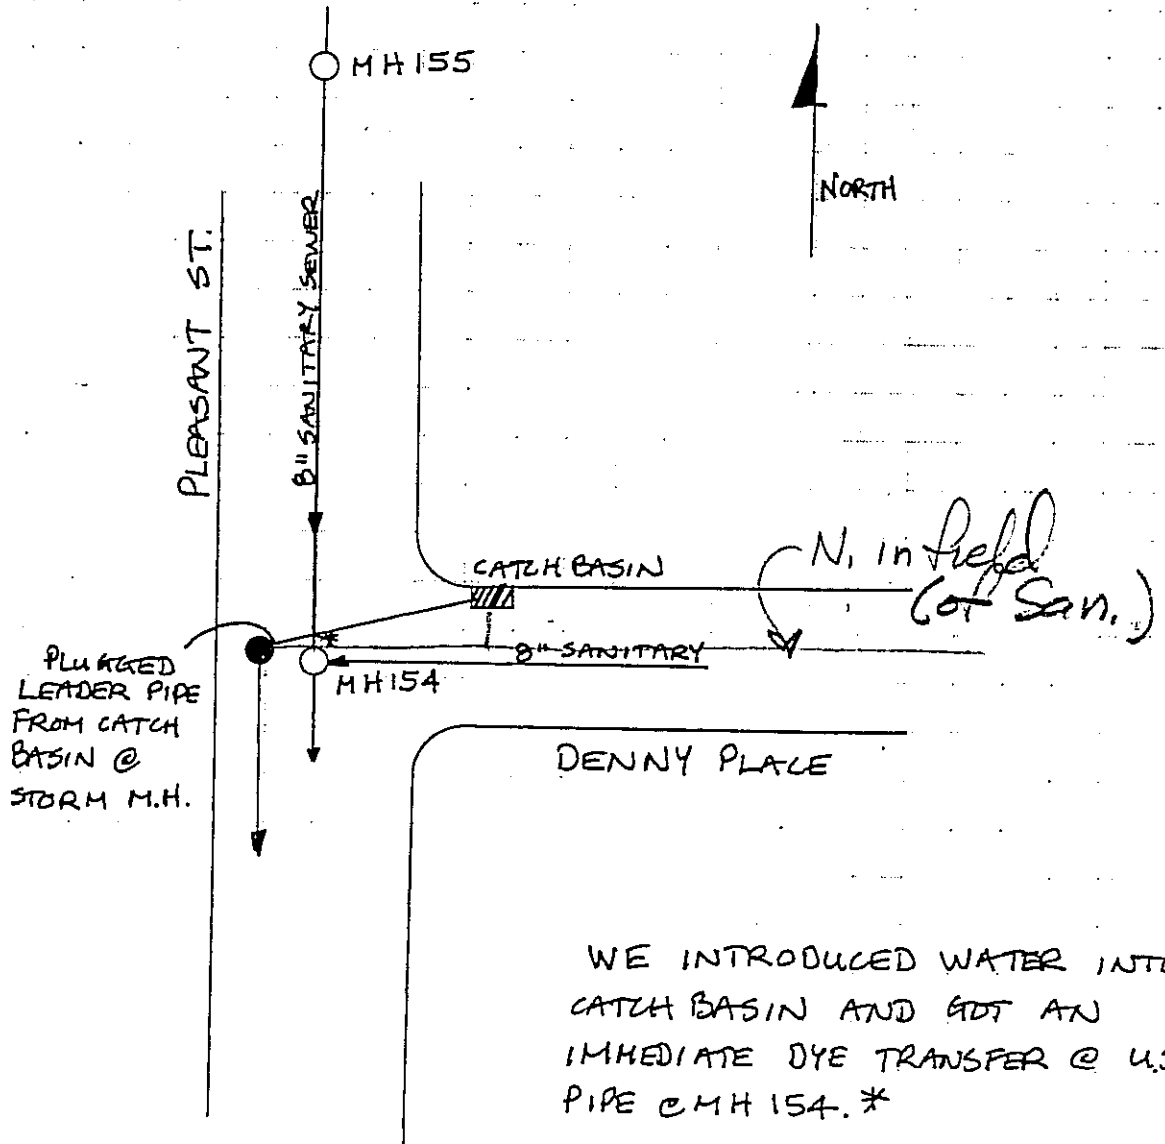 MH155
NORTH
PLEASANT ST.
8" SANITARY SEWER
CATCH BASIN
N. in field
(of San.)
8" SANITARY
MH154
PLUGGED
LEADER PIPE
FROM CATCH
BASIN @
STORM M.H.
*
DENNY PLACE
WE INTRODUCED WATER INTO
CATCH BASIN AND GOT AN
IMMEDIATE DYE TRANSFER @ U.S
PIPE @ MH 154. *